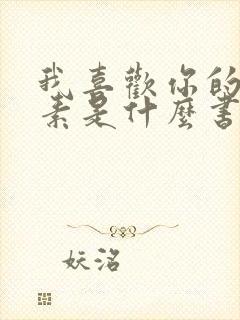 我喜歡你的
素是什麼書
妖洛